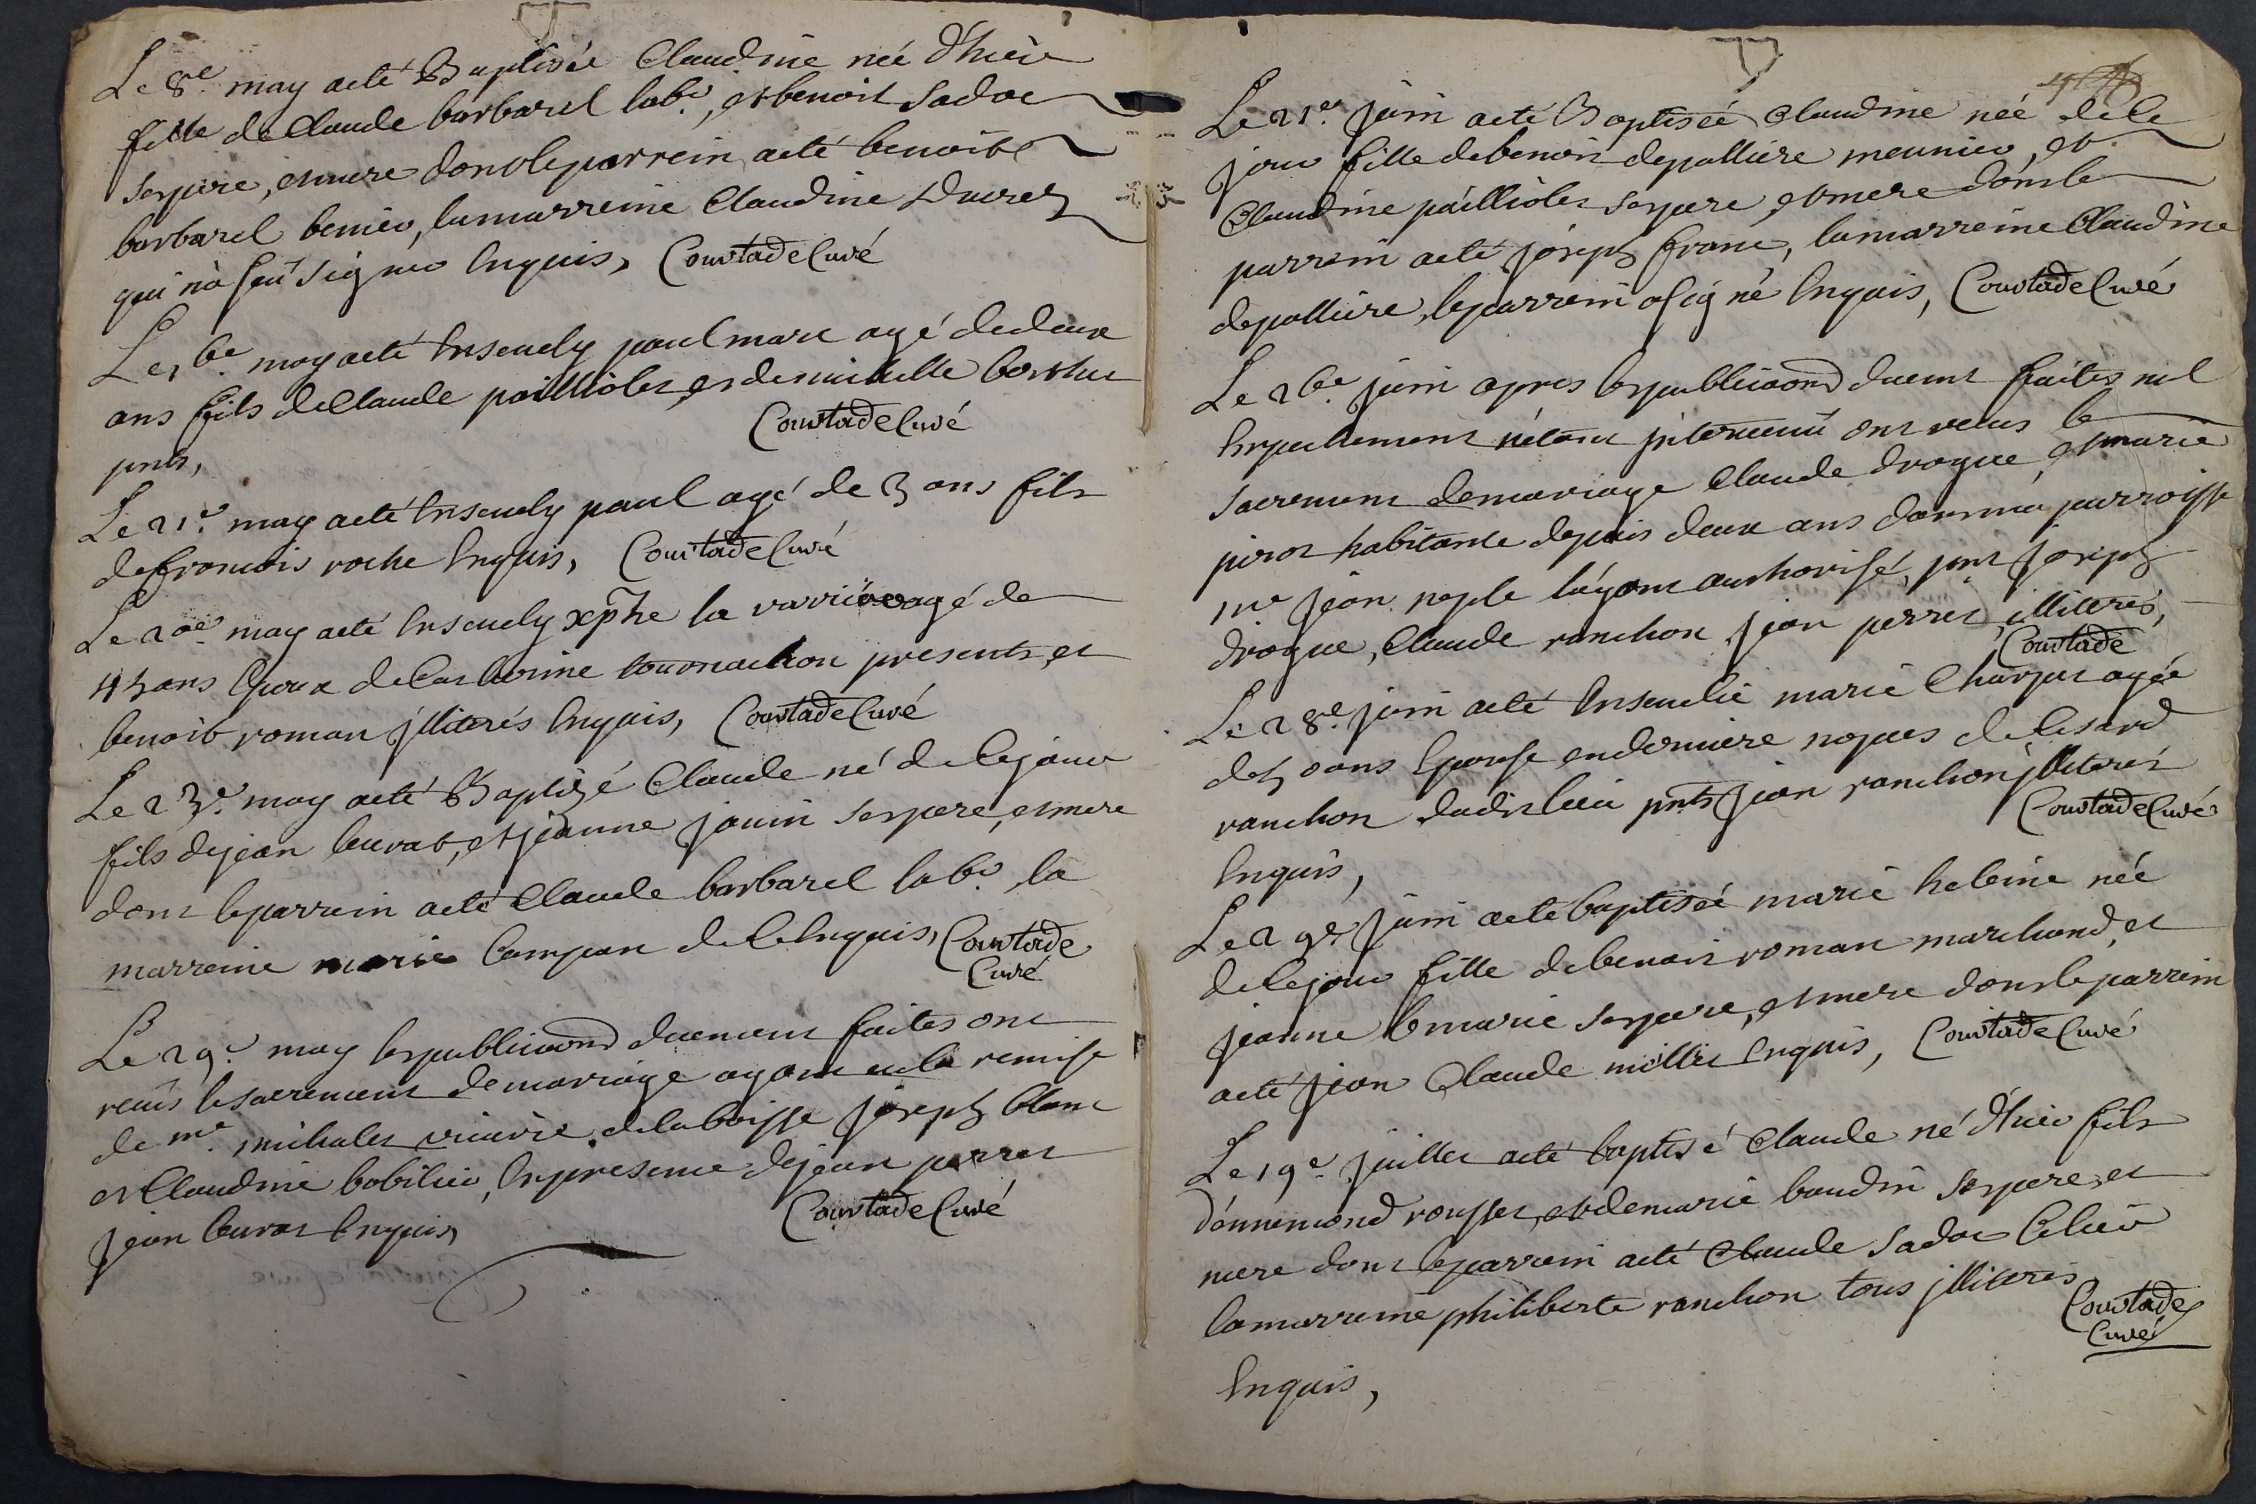 Le 8e. may a eté Baptisée Claudine née d'hier
fille de Claude barbarel labr, et benoit Sadoc
ses pere, et mere dont le parrein a eté benoit
barbarel benier, la marreine Claudine Ducret
qui n'a seu signer Enquis, Courtade Curé
Le 16e. may a eté Ensevely paul marc agé de deux
ans fils de Claude paillioles et de michelle borthe
pnts, Courtade Curé
Le 21e. may a eté Ensevely paul agé de 3 ans fils
de francois roche Enquis, Courtade Curé
Le 20e. may a eté Ensevely xphe la varriore agé de
45 ans Epoux de Catherine tournachon presents, et
benoit roman jlliterés Enquis, Courtade Curé
Le 23e. may a eté Baptizé Claude né de le jour
fils de jean leurat, et jeanne jouin ses pere, et mere
dont le parrein a eté Claude barbarel labr. la
marreine marie Campan de ce Enquis, Courtade
Curé
Le 29e. may les publica͠ons duement faites ont
receus le sacrement de mariage ayant eu la remise
de mr. michalet vicaire de la boisse joseph blanc
et Claudine bobilier, En presence de jean perret
jean leurat Enquis, Courtade Curé
Le 21e. juin a eté Baptisée Claudine née de le
jour fille de benoit depalliere meunier, et
Claudine paillioles ses pere et mere dont le
parrein a eté joseph franc, la marreine Claudine
depalliere, le parrein a signé Enquis, Courtade Curé
Le 26e. juin apres les publica͠ons duemt faites nul
Empechement n'étant jntervenu ont receus le
sacrement de mariage Claude drogue et marie
pirot habitante depuis deux ans dans ma parroisse
mr. jean l'ayant authorisé, pnt joseph
drogue, Claude ranchon jean perret, jlliterés,
Courtade
Le 28e. juin a eté Ensevelie marie Charpet agée
de 50 ans Epouse en derniere nopces de Cesard
ranchon dudit lieu pnts jean ranchon jlliterés
Enquis, Courtade Curé
Le 29e. juin a eté baptisée marie heleine née
de le jour fille de benoit roman marchand, et
jeanne lemarie ses pere, et mere dont le parrein
a eté jean Claude millet Enquis, Courtade Curé
Le 19e. juillet a eté baptisé Claude né d'hier fils
d'ennemond rousset, et de marie baudin ses pere, et
mere dont le parrein a eté Claude Sadoc Celier
la marreine philiberte ranchon tous jlliterés
Enquis, Courtade
Curé